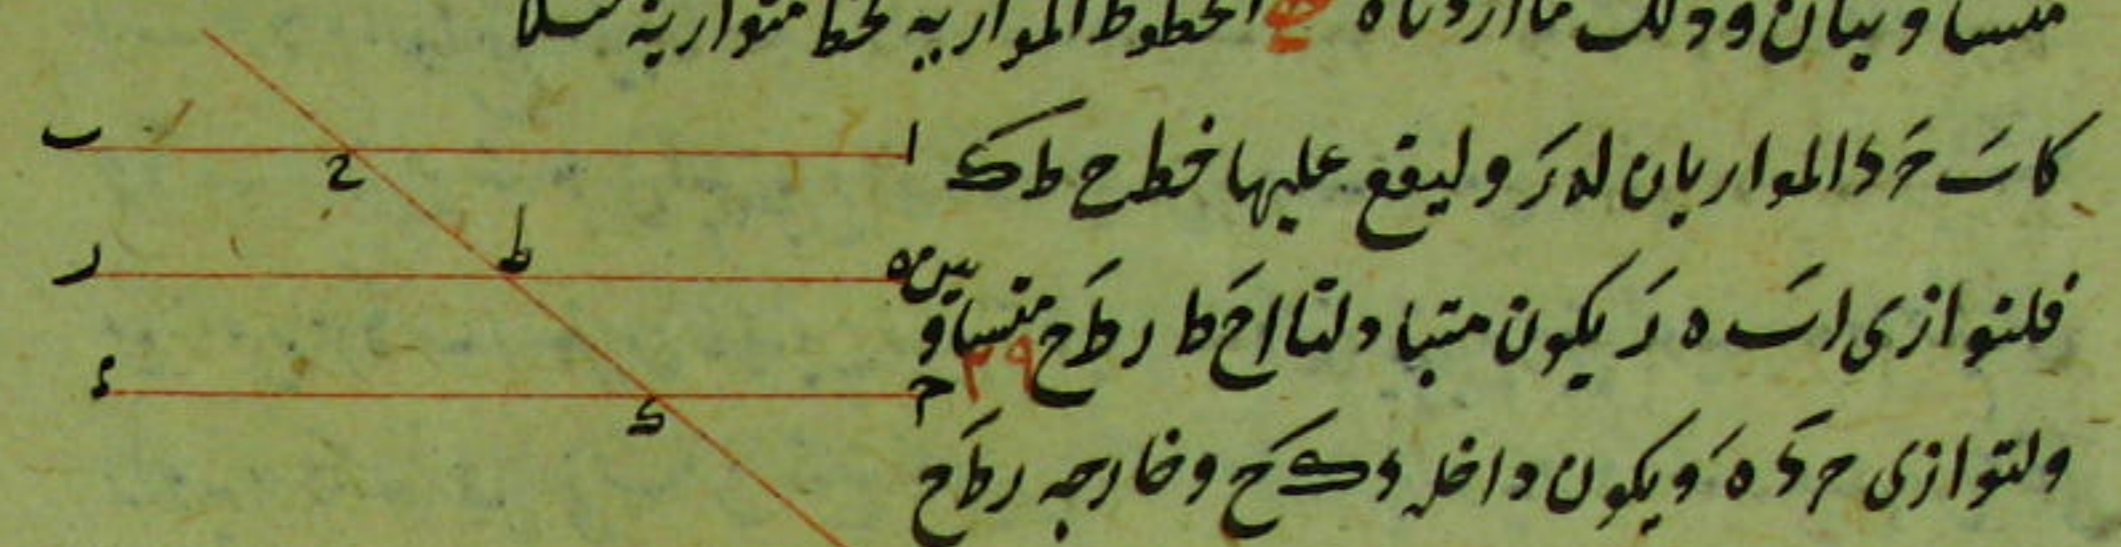 متساويتان وذلك ما اردناه الخطوط الموازية لخط متوازية مثلا
كاب حد الموازيان له ر وليقع عليها خط ح ط ك
فلتوازى اب ه ر يكون متبادلتا اح ط ر ط ح متساويتين
ولتوازى حد ه ر يكون داخله د ك ح وخارجه ر ط ح
ب
ا
ح
ر
ط
ه
ء
ك
ح
٣٩